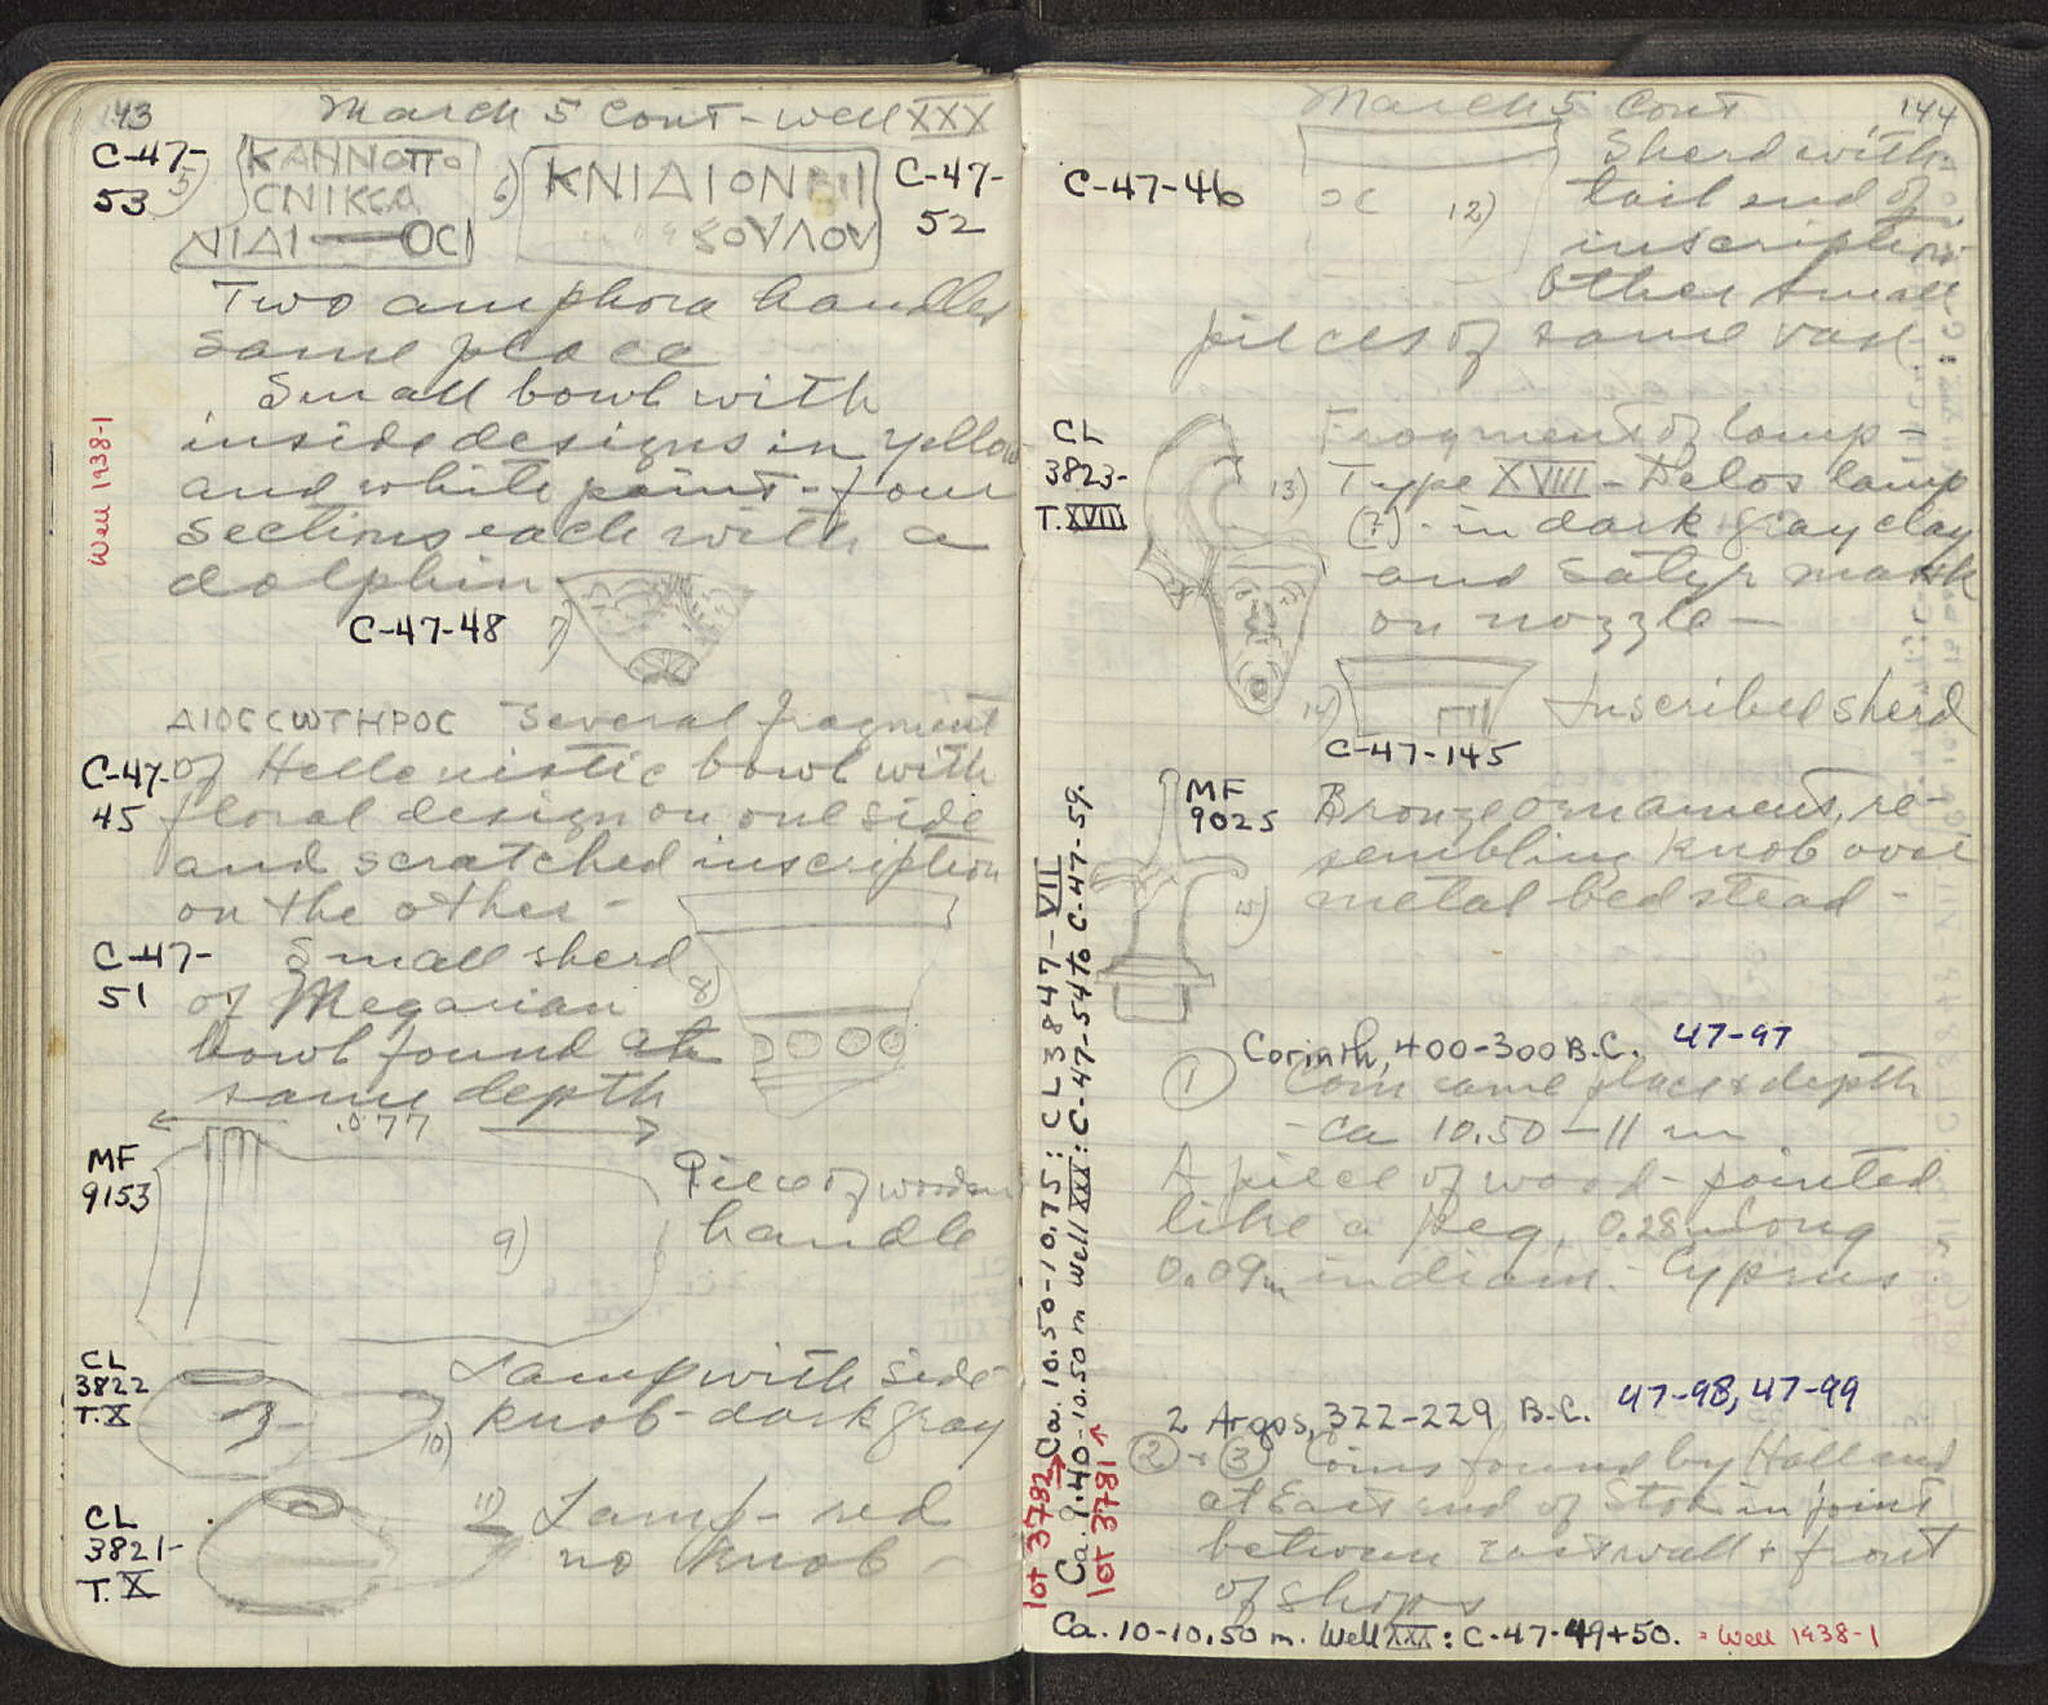 143
March 5 Cont - Well XXX
C-47-
53
5)
ΚΑΗΝΟΠΟ
CΝΙΚCΑ
ΝΙΔΙ — ΟCΙ
6)
ΚΝΙΔΙΟΝ
ΒΟΥΛΟΥ
C-47-
52
Two amphora handles
same place
Small bowl with
inside designs in yellow
and white paint - four
sections each with a
dolphin
C-47-48
7)
Well 1938-1
ΔΙΟCCWTHPOC Several fragment
C-47-
45
of Hellenistic bowl with
floral design on one side
and scratched inscription
on the other -
C-47-
51
Small sherd
of Megarian
bowl found at
same depth
8)
.077
MF
9153
9)
Piece of wooden
handle
CL
3822
T.X
10)
Lamp with side
knob - dark gray
CL
3821-
T.X
11)
Lamp - red
no knob -
144
March 5 Cont
C-47-46
12)
Sherd with
tail end of
inscription
Other small
pieces of same vase
CL
3823-
T.XVIII
13)
Fragment of lamp -
Type XVIII - Delos lamp
(?) - in dark gray clay
and satyr mask
on nozzle -
14)
Inscribed sherd
C-47-145
MF
9025
15)
Bronze ornament, re-
sembling knob over
metal bedstead -
Corinth, 400-300 B.C. 47-97
1 Coin same place & depth
- ca 10.50 - 11 m.
A piece of wood - pointed
like a peg, 0.28m long
0.09m in diam. - Cyprus
2 Argos, 322-229 B.C. 47-98, 47-99
2 + 3 Coins found by Holland
at East end of Stoa in joint
between east wall + front
of shops
lot 3782 → Ca. 10.50-10.75: CL 3847-VII
Ca. 9.40-10.50 m Well XXX: C-47-54 to C-47-59.
lot 3781
Ca. 10-10.50 m. Well XXX: C-47-49+50. = Well 1938-1